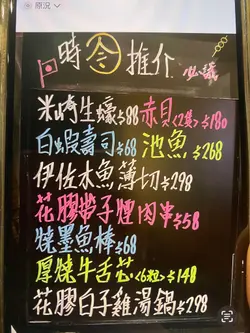 原況
時令推介 必議
米崎生蠔$88 赤貝<2隻>$180
白蝦壽司$68 池魚$268
伊佐木魚薄切$298
花膠帶子煙肉串$58
燒墨魚棒$68
厚燒牛舌芯<6粒>$148
花膠白子雞湯鍋$298